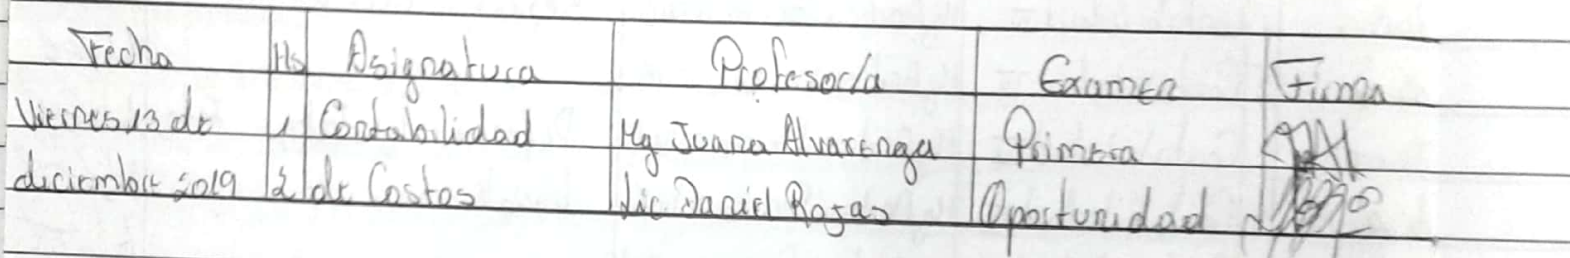 Fecha Hs Asignatura Profesor/a Examen Firma
Viernes 13 de 1 Contabilidad Mg Juana Alvarenga Primera
diciembre 2019 2 de Costos Lic Daniel Rojas Oportunidad